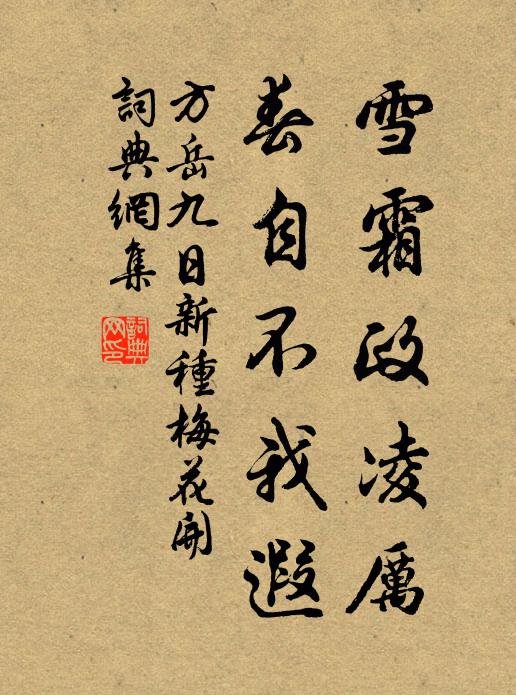 雪霜政凌厲
春自不我遐
方岳九日新種梅花開
詞典網集
詞典網印